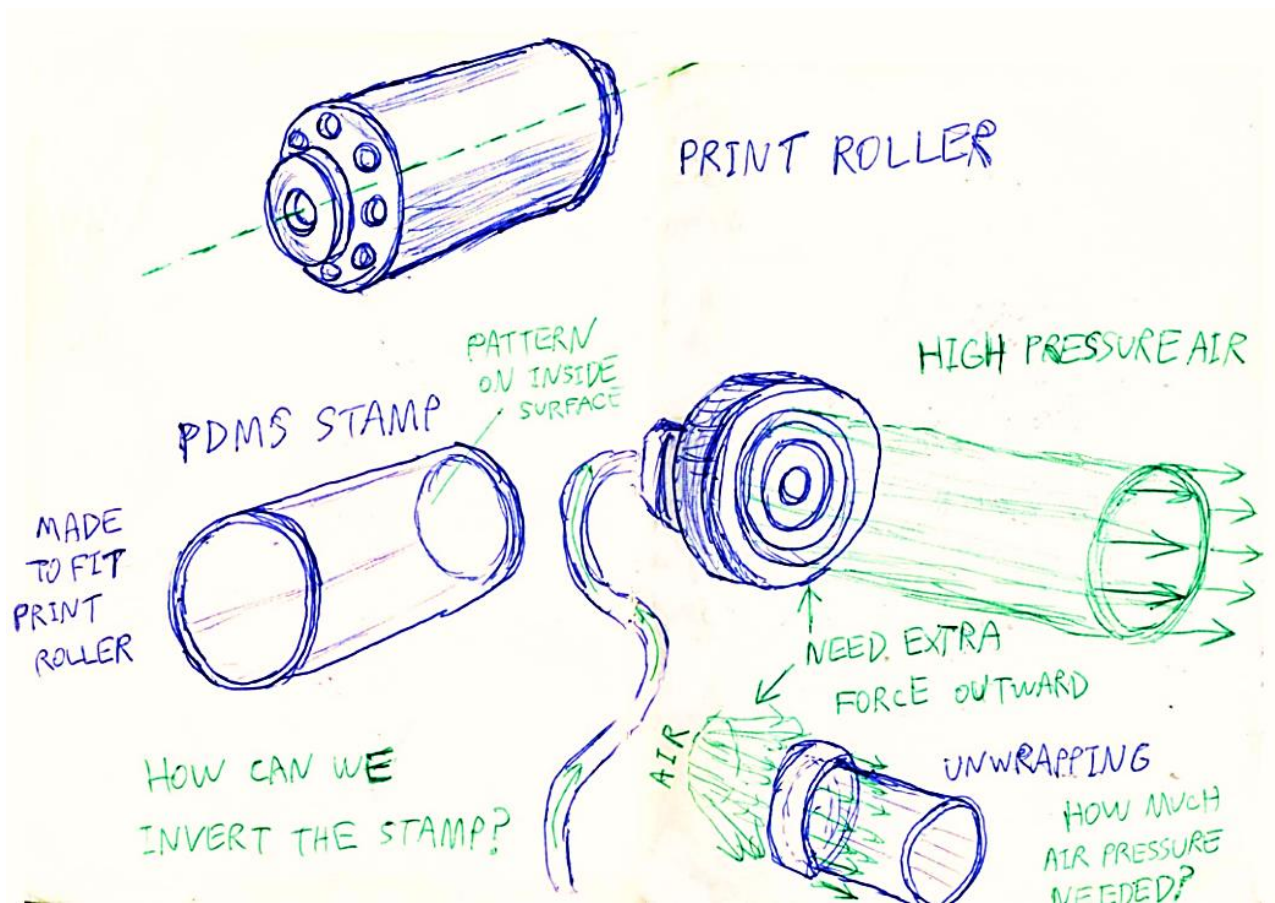 PRINT ROLLER
PATTERN
ON INSIDE
SURFACE
HIGH PRESSURE AIR
PDMS STAMP
MADE
TO FIT
PRINT
ROLLER
NEED EXTRA
FORCE OUTWARD
AIR
UNWRAPPING
HOW CAN WE
INVERT THE STAMP?
HOW MUCH
AIR PRESSURE
NEEDED?